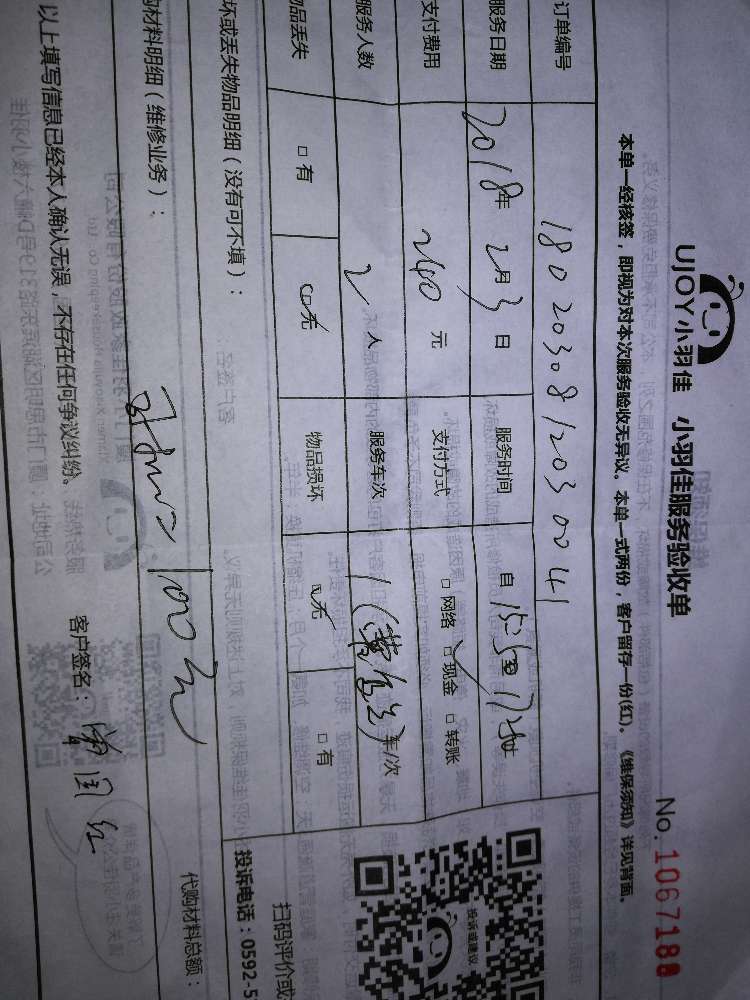 UJOY小羽佳 小羽佳服务验收单
No. 1067180
本单一经核签，即视为对本次服务验收无异议。本单一式两份，客户留存一份(红)。《维保须知》详见背面。
订单编号 1802030812030041
服务日期 2018年2月3日 服务时间 自
支付费用 240元 支付方式 □网络 □现金 □转账
服务人数 2人 服务车次 1 车/次
品丢失 □有 □无 物品损坏 □无 □有
坏或丢失物品明细（没有可不填）：
扫码评价或
投诉或建议
投诉电话：0592-5
材料明细（维修业务）： 100元
代购材料总额：
以上填写信息已经本人确认无误，不存在任何争议纠纷。
客户签名：